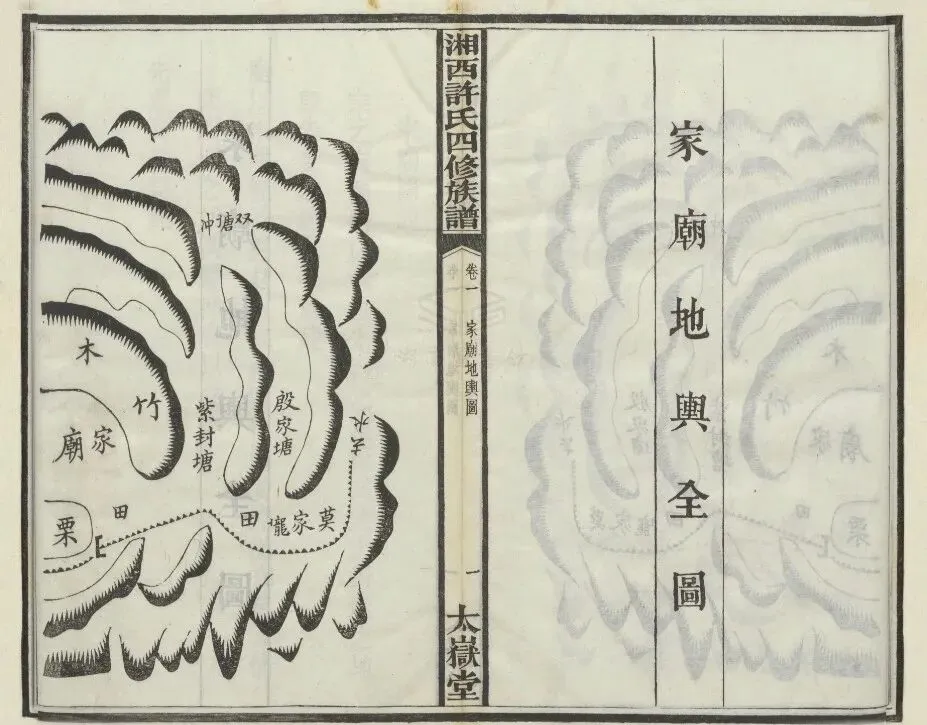 家廟地輿全圖
湘西許氏四修族譜
卷一
家廟地輿圖
一
太嶽堂
双塘沖
水去
殷家塘
莫家壠
田
紫封塘
竹
木
家廟
田
栗